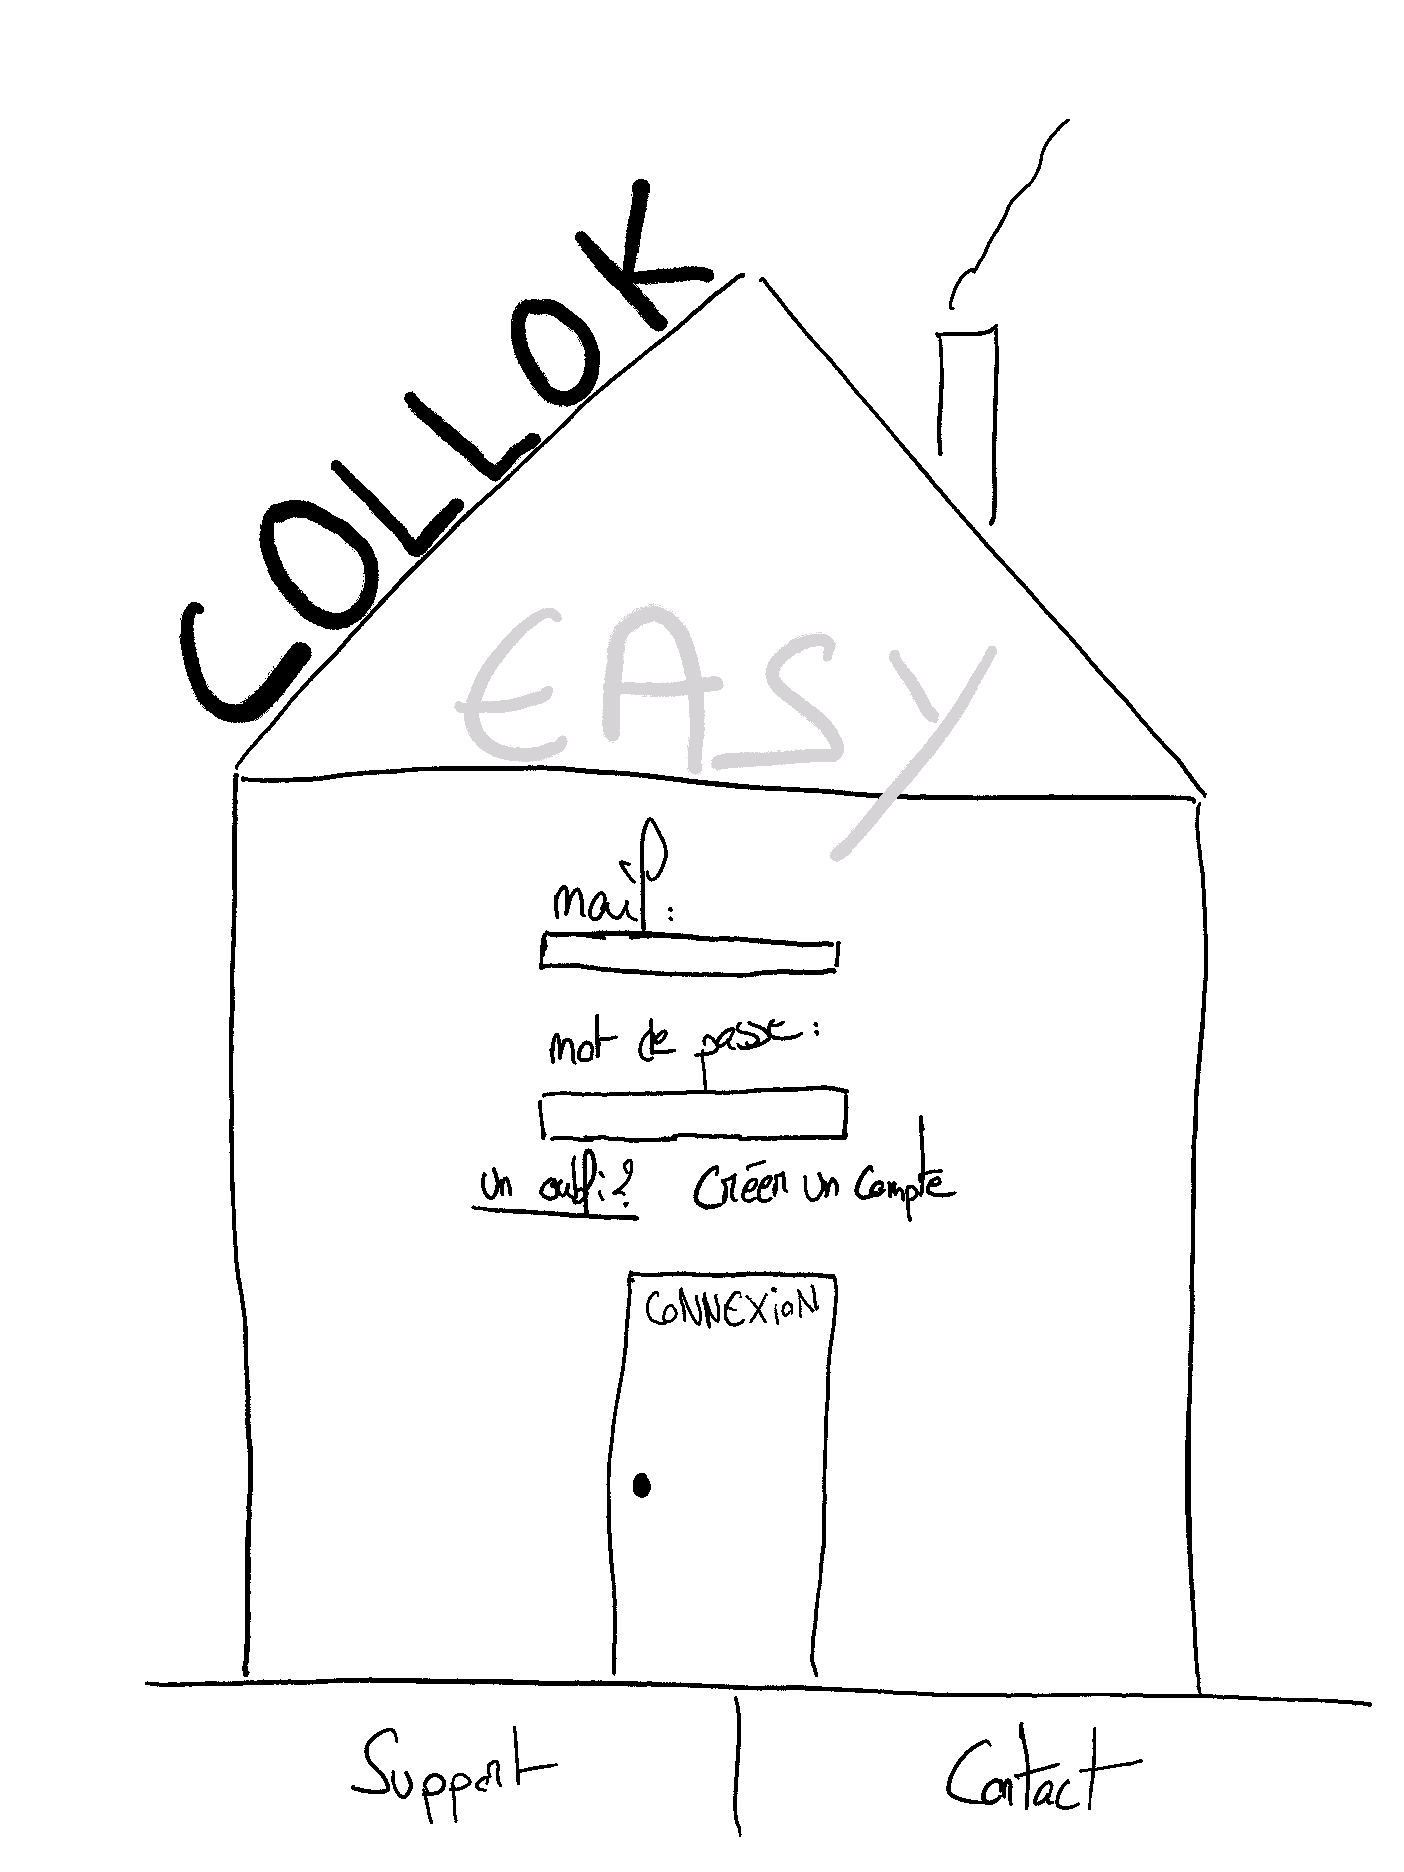 COLLOK
EASY
mail :
mot de passe :
un oubli? Créer un compte
CONNEXiON
Support
Contact